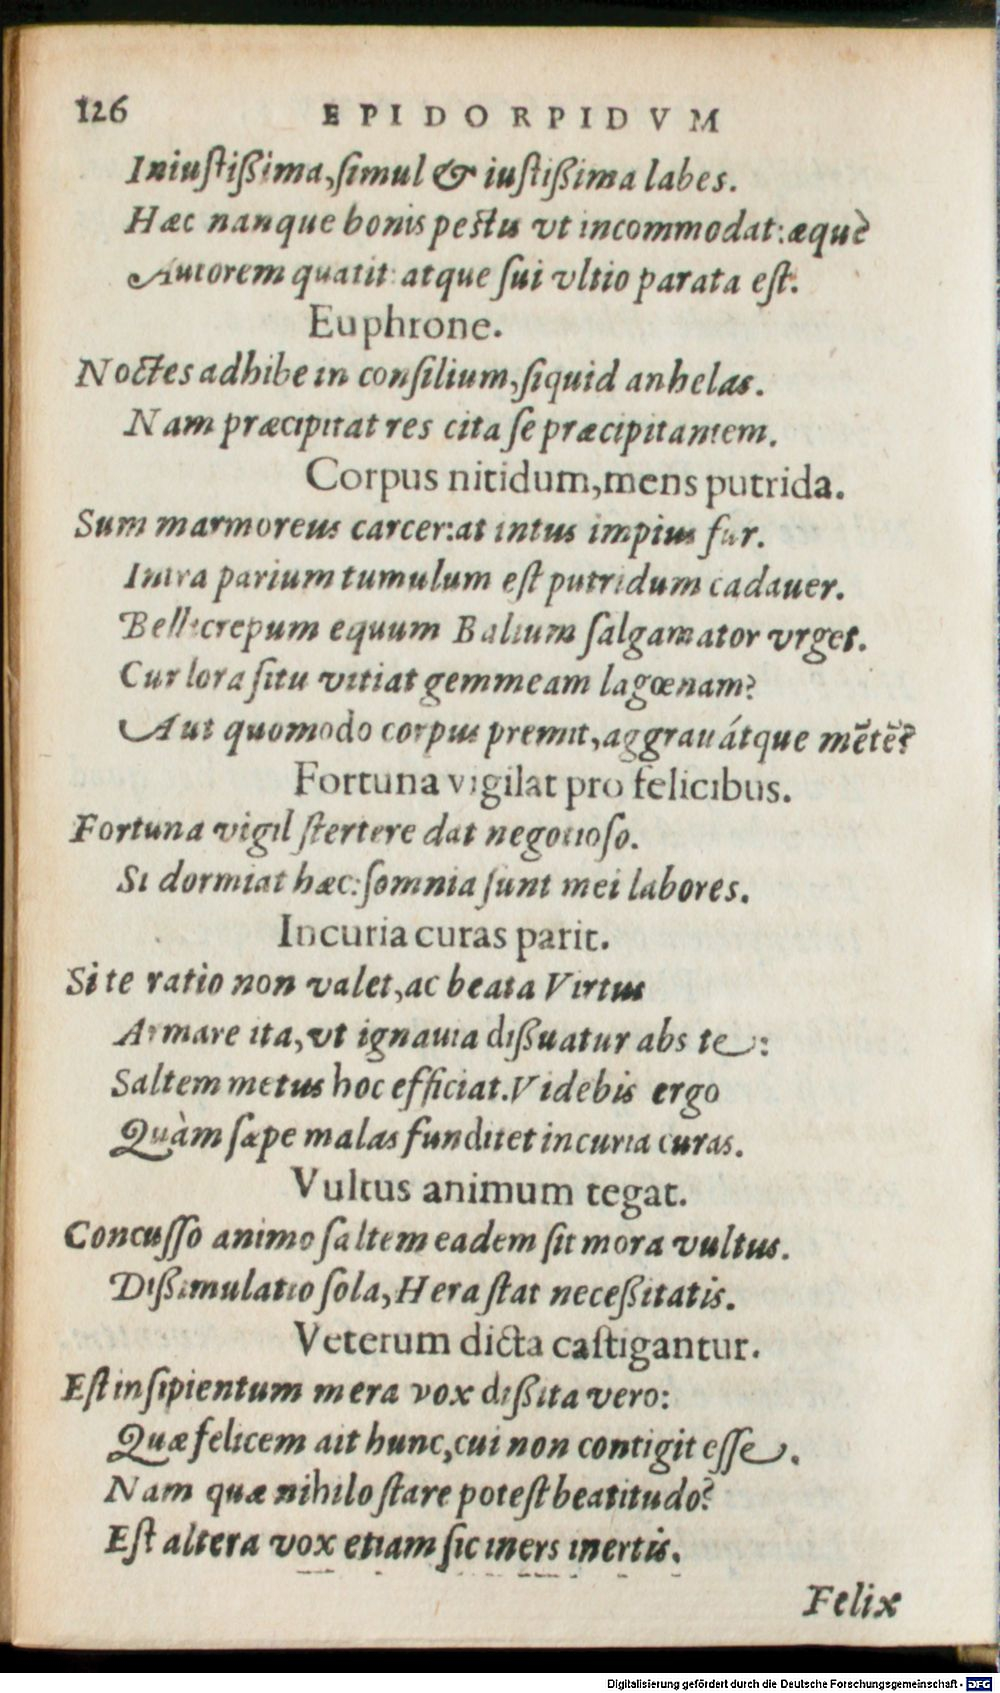 126 EPIDORPIDVM
Iniustißima, simul & iustißima labes.
Hæc nanque bonis pestu vt incommodat: æquè
Autorem quatit: atque sui vltio parata est.
Euphrone.
Noctes adhibe in consilium, siquid anhelas.
Nam præcipitat res cita se præcipitantem.
Corpus nitidum, mens putrida.
Sum marmoreus carcer: at intus impius fur.
Intra parium tumulum est putridum cadauer.
Bellicrepum equum Balium salgamator vrget.
Cur lora situ vitiat gemmeam lagœnam?
Aut quomodo corpus premit, aggrauátque mētē?
Fortuna vigilat pro felicibus.
Fortuna vigil stertere dat negotioso.
Si dormiat hæc: somnia sunt mei labores.
Incuria curas parit.
Si te ratio non valet, ac beata Virtus
Armare ita, vt ignauia dißuatur abs te:
Saltem metus hoc efficiat. Videbis ergo
Quàm sæpe malas funditet incuria curas.
Vultus animum tegat.
Concusso animo saltem eadem sit mora vultus.
Dißimulatio sola, Hera stat neceßitatis.
Veterum dicta castigantur.
Est insipientum mera vox dißita vero:
Quæ felicem ait hunc, cui non contigit esse.
Nam quæ nihilo stare potest beatitudo?
Est altera vox etiam sic iners inertis.
Felix
Digitalisierung gefördert durch die Deutsche Forschungsgemeinschaft - DFG